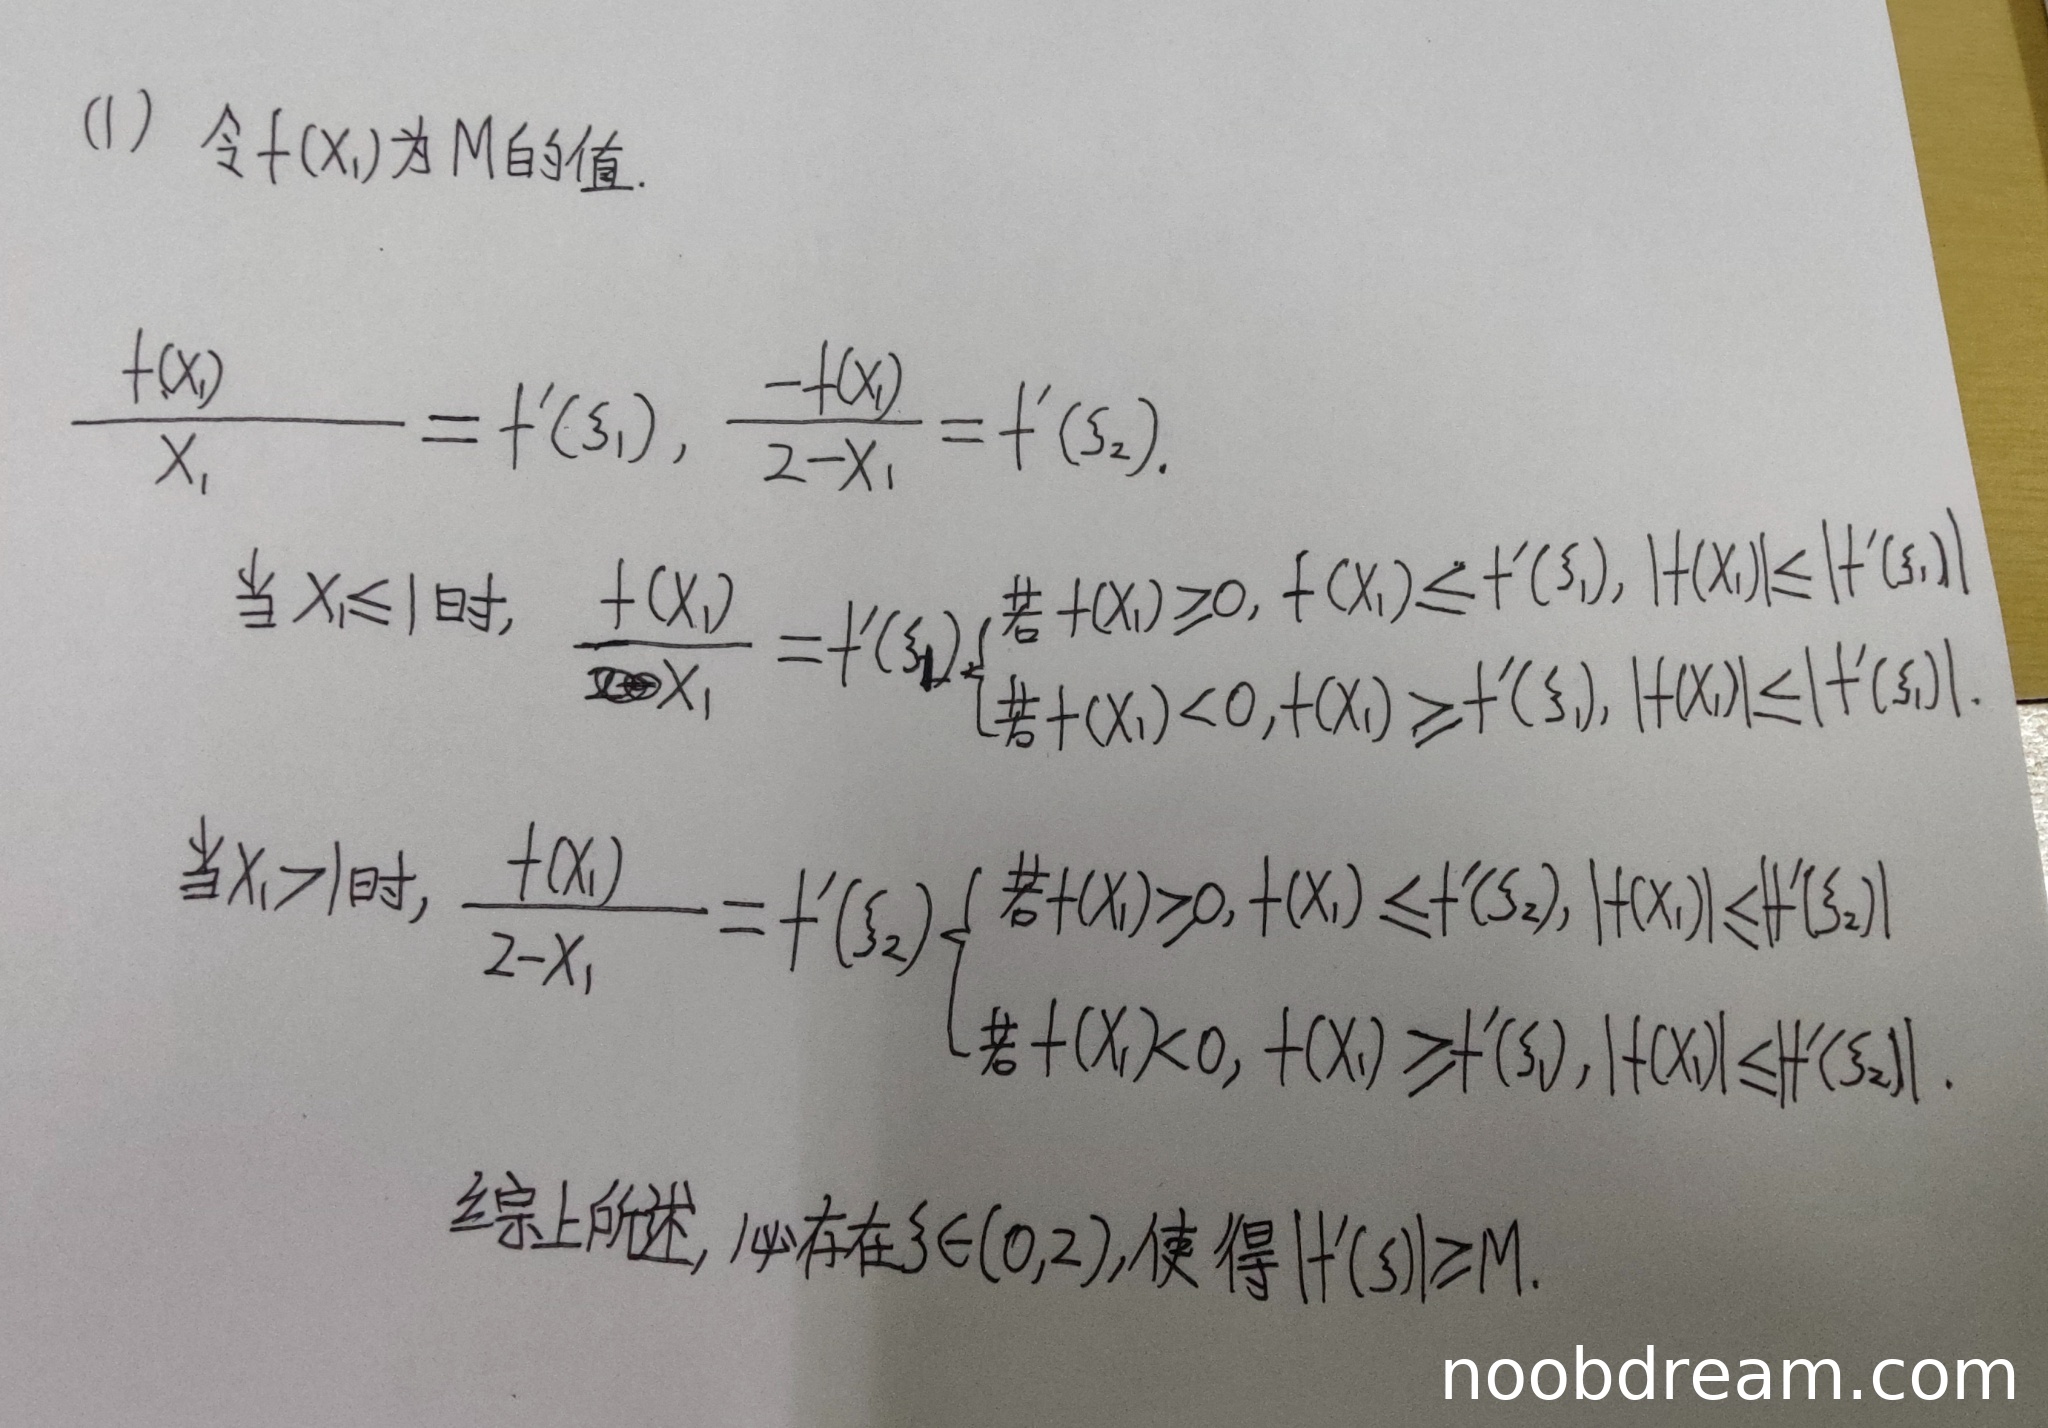 (1) 令f(x₁)为M的值.
f(x₁)/x₁ = f′(ξ₁), -f(x₁)/(2-x₁) = f′(ξ₂).
当x₁≤1时, f(x₁)/x₁ = f′(ξ₁). { 若f(x₁)≥0, f(x₁)≤f′(ξ₁), |f(x₁)|≤|f′(ξ₁)|
若f(x₁)<0, f(x₁)≥f′(ξ₁), |f(x₁)|≤|f′(ξ₁)|.
当x₁>1时, f(x₁)/(2-x₁) = f′(ξ₂) { 若f(x₁)≥0, f(x₁)≤f′(ξ₂), |f(x₁)|≤|f′(ξ₂)|
若f(x₁)<0, f(x₁)≥f′(ξ₁), |f(x₁)|≤|f′(ξ₂)|.
综上所述, 必存在ξ∈(0,2), 使得|f′(ξ)|≥M.
noobdream.com